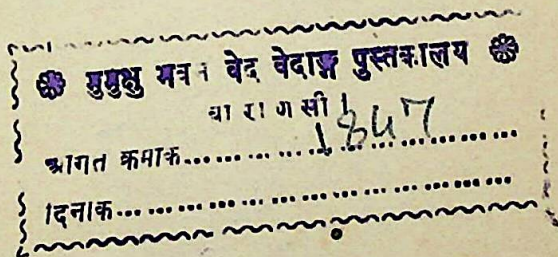 ❀ मुमुक्षु भवन वेद वेदाङ्ग पुस्तकालय ❀
वाराणसी ।
आगत क्रमाक.............1847.............
दिनाक.......................................